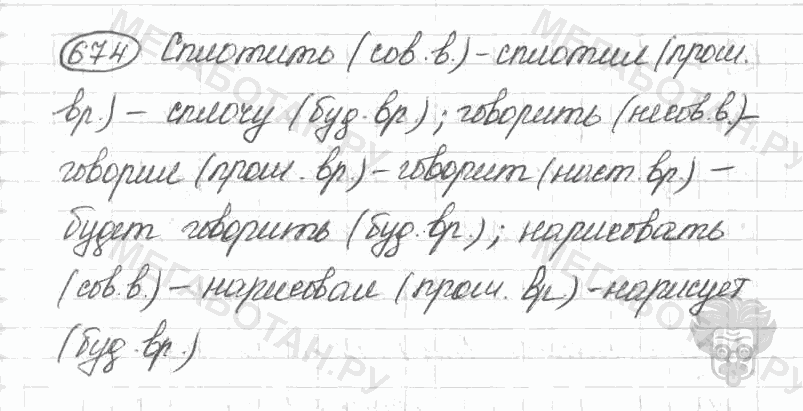 674 Сплотить (сов.в.) – сплотил (прош.
вр.) – сплочу (буд.вр.); говорить (несов.в.)–
говорил (прош. вр.) – говорит (наст.вр.) –
будет говорить (буд.вр.); нарисовать
(сов.в.) – нарисовал (прош. вр) – нарисует
(буд.вр.)
МЕГАБОТАН.РУ
МЕГАБОТАН.РУ
МЕГАБОТАН.РУ
МЕГАБОТАН.РУ